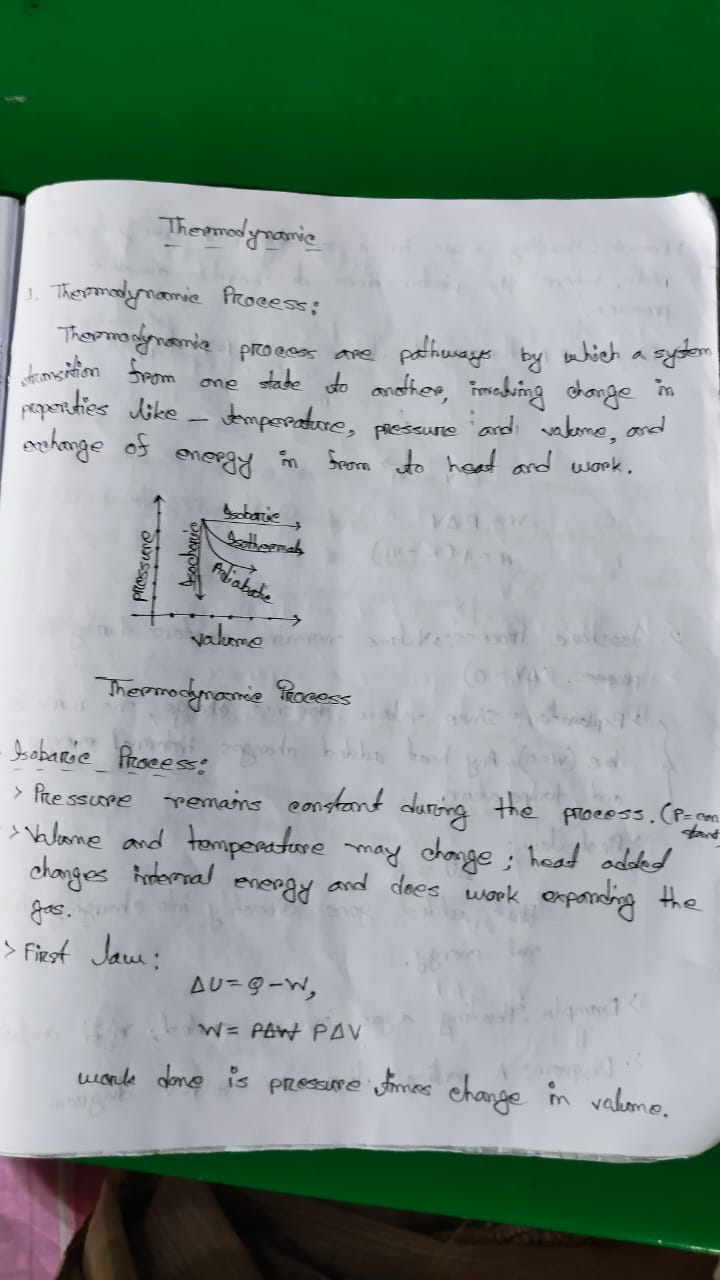 Thermodynamic
1. Thermodynamic Process:
Thermodynamic process are pathways by which a system
transition from one state to another, involving change in
properties like - temperature, pressure and volume, and
exchange of energy in from to heat and work.
Pressure
Isochoric
Isobaric
Isothermal
Adiabatic
volume
Thermodynamic Process
Isobaric Process:
> Pressure remains constant during the process. (P = con
stant)
> Volume and temperature may change; heat added
changes internal energy and does work expanding the
gas.
> First law:
ΔU = Q - W,
W = PΔW PΔV
work done is pressure times change in volume.